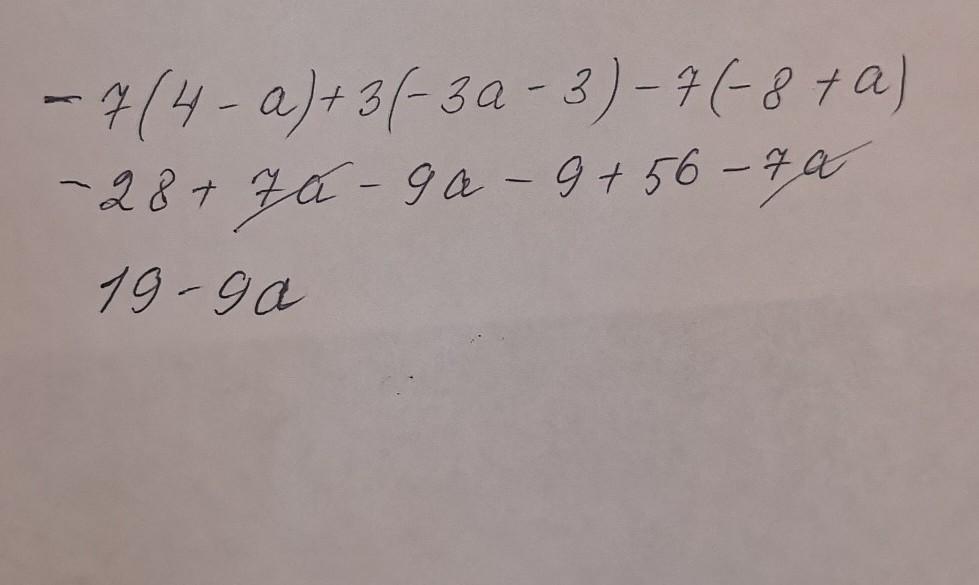 - 7(4 - a) + 3(-3a - 3) - 7(-8 + a)
-28 + 7a - 9a - 9 + 56 - 7a
19 - 9a